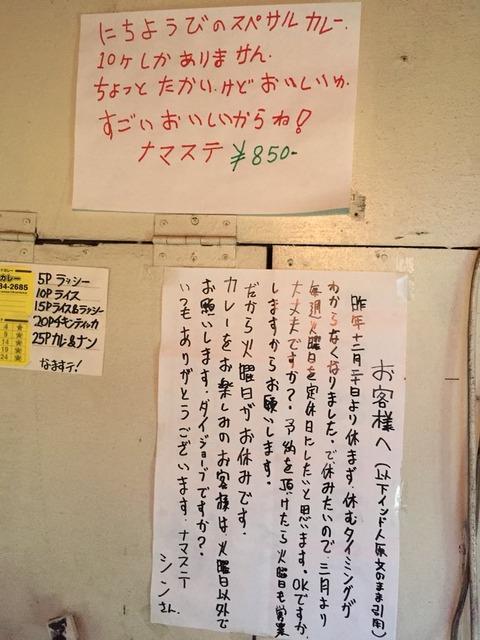 にちようびのスペサルカレー.
10ケしかありません.
ちょっとたかい.けどおいしいか.
すごいおいしいからね!
ナマステ ¥850-
カレー
34-2685
4 ★
9 ★
14 ★
19 ★
24 ★
5P ラッシー
10P ライス
15Pライス&ラッシー
20Pチキンティッカ
25Pカレー&ナン
なますテ!
お客様へ(以下インド人原文のまま引用)
昨年十二月二十日より休まず.休むタイミングが
わからなくなりました.で休みたいので.三月より
毎週火曜日を定休日にしたいと思います。OKですか.
大丈夫ですか?.予約を頂けたら火曜日も営業
しますからお願いします。
だから火曜日がお休みです.
カレーをお楽しみのお客様は火曜日以外で
お願いします.ダイジョーブですか?.
いつもありがとうございます.ナマステ
シンさん.